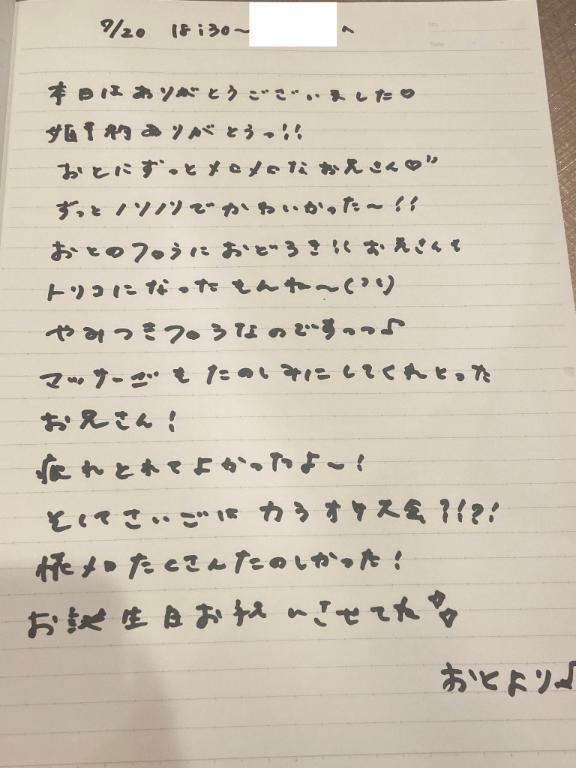 7/20 18:30〜 へ
本日はありがとうございました♡
姫予約ありがとうっ!!
おとにずっとメロメロなお兄さん♡"
ずっとノリノリでかわいかった〜!!
おとのフロうにおどろき!! お兄さんも
トリコになったもんね〜
やみつきフロうなのですっっ♪
マッサージもたのしみにしてくれとった
お兄さん!
疲れとれてよかったよ〜!
そしてさいごはカラオケ大会?!?!
懐メロたくさんたのしかった!
お誕生日お祝いさせてね
おとより♪